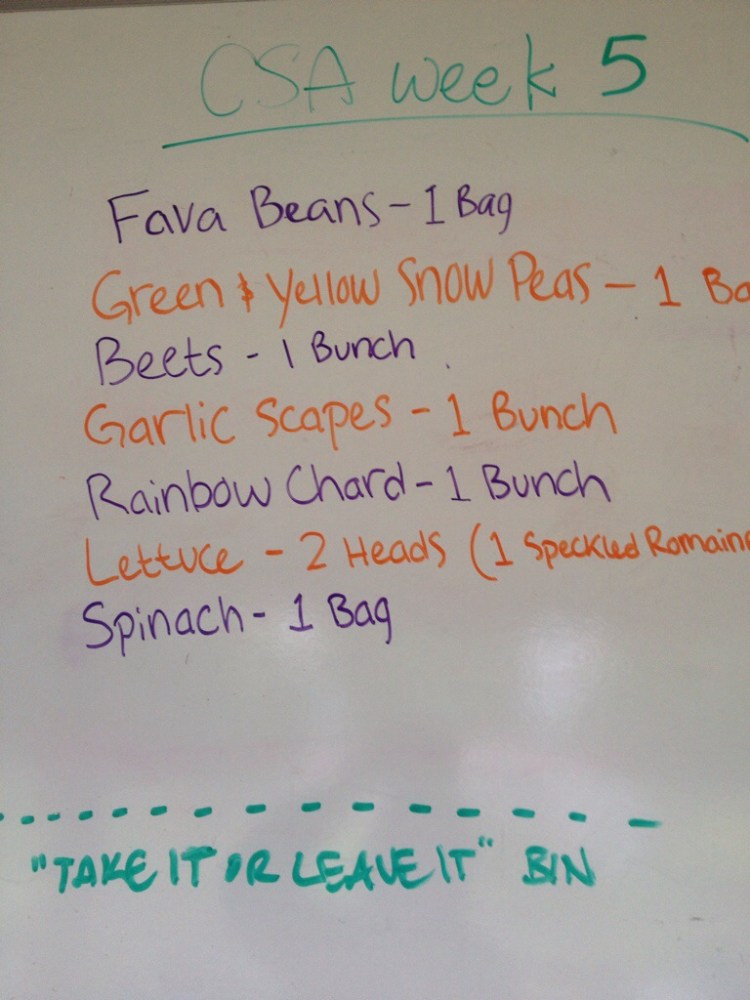 CSA week 5
Fava Beans - 1 Bag
Green & Yellow Snow Peas - 1 Ba
Beets - 1 Bunch
Garlic Scapes - 1 Bunch
Rainbow Chard - 1 Bunch
Lettuce - 2 Heads (1 Speckled Romaine
Spinach - 1 Bag
"TAKE IT OR LEAVE IT" BIN